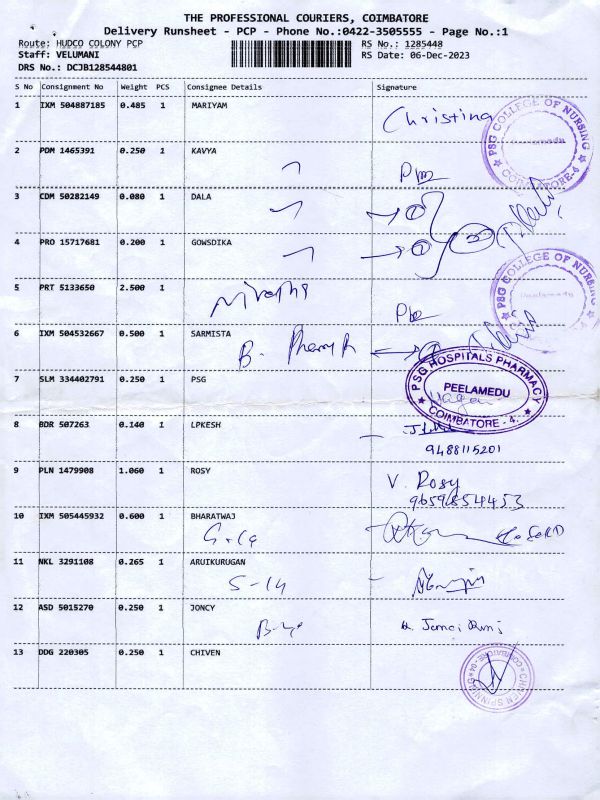 THE PROFESSIONAL COURIERS, COIMBATORE
Delivery Runsheet - PCP - Phone No.:0422-3505555 - Page No.:1
Route: HUDCO COLONY PCP
Staff: VELUMANI
DRS No.: DCJB128544801
RS No.: 1285448
RS Date: 06-Dec-2023
S No Consignment No Weight PCS Consignee Details Signature
1 IXM 504887185 0.485 1 MARIYAM
Christina
PSG COLLEGE OF NURSING
COIMBATORE-4
2 PDM 1465391 0.250 1 KAVYA
3 CDM 50282149 0.080 1 DALA
4 PRO 15717681 0.200 1 GOWSDIKA
PSG COLLEGE OF NURSING
Peelamedu
5 PRT 5133650 2.500 1
6 IXM 504532667 0.500 1 SARMISTA
B.
PSG HOSPITALS PHARMACY
PEELAMEDU
COIMBATORE - 4.
7 SLM 334402791 0.250 1 PSG
8 BDR 507263 0.140 1 LPKESH
9488115201
9 PLN 1479908 1.060 1 ROSY
V. Rosy
9659854453
10 IXM 505445932 0.600 1 BHARATWAJ
11 NKL 3291108 0.265 1 ARUIKURUGAN
S-14
12 ASD 5015270 0.250 1 JONCY
13 DDG 220305 0.250 1 CHIVEN